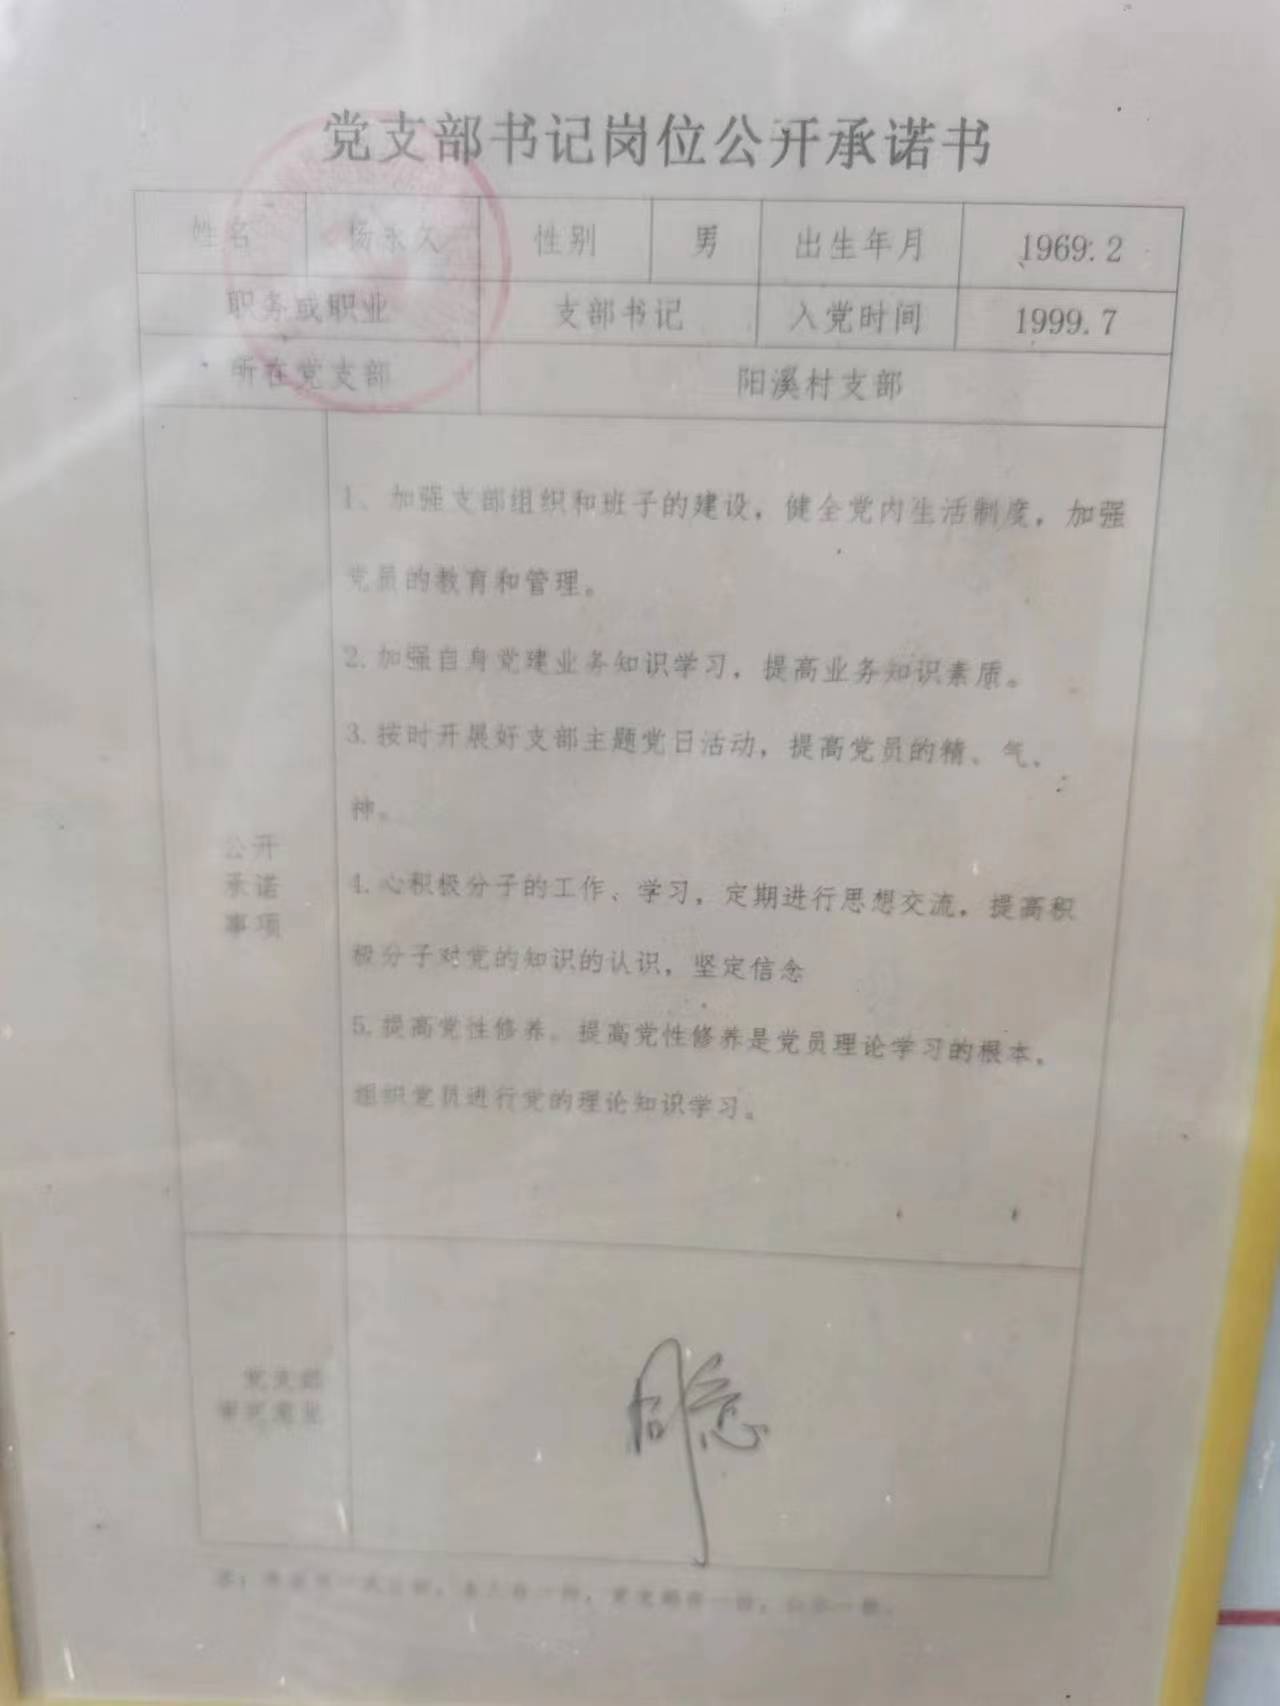 党支部书记岗位公开承诺书
姓名 杨永久 性别 男 出生年月 1969.2
职务或职业 支部书记 入党时间 1999.7
所在党支部 阳溪村支部
公开
承诺
事项
1、加强支部组织和班子的建设，健全党内生活制度，加强
党员的教育和管理。
2.加强自身党建业务知识学习，提高业务知识素质。
3.按时开展好支部主题党日活动，提高党员的精、气、
神。
4.心积极分子的工作、学习，定期进行思想交流，提高积
极分子对党的知识的认识，坚定信念
5.提高党性修养。提高党性修养是党员理论学习的根本，
组织党员进行党的理论知识学习。
党支部
同意